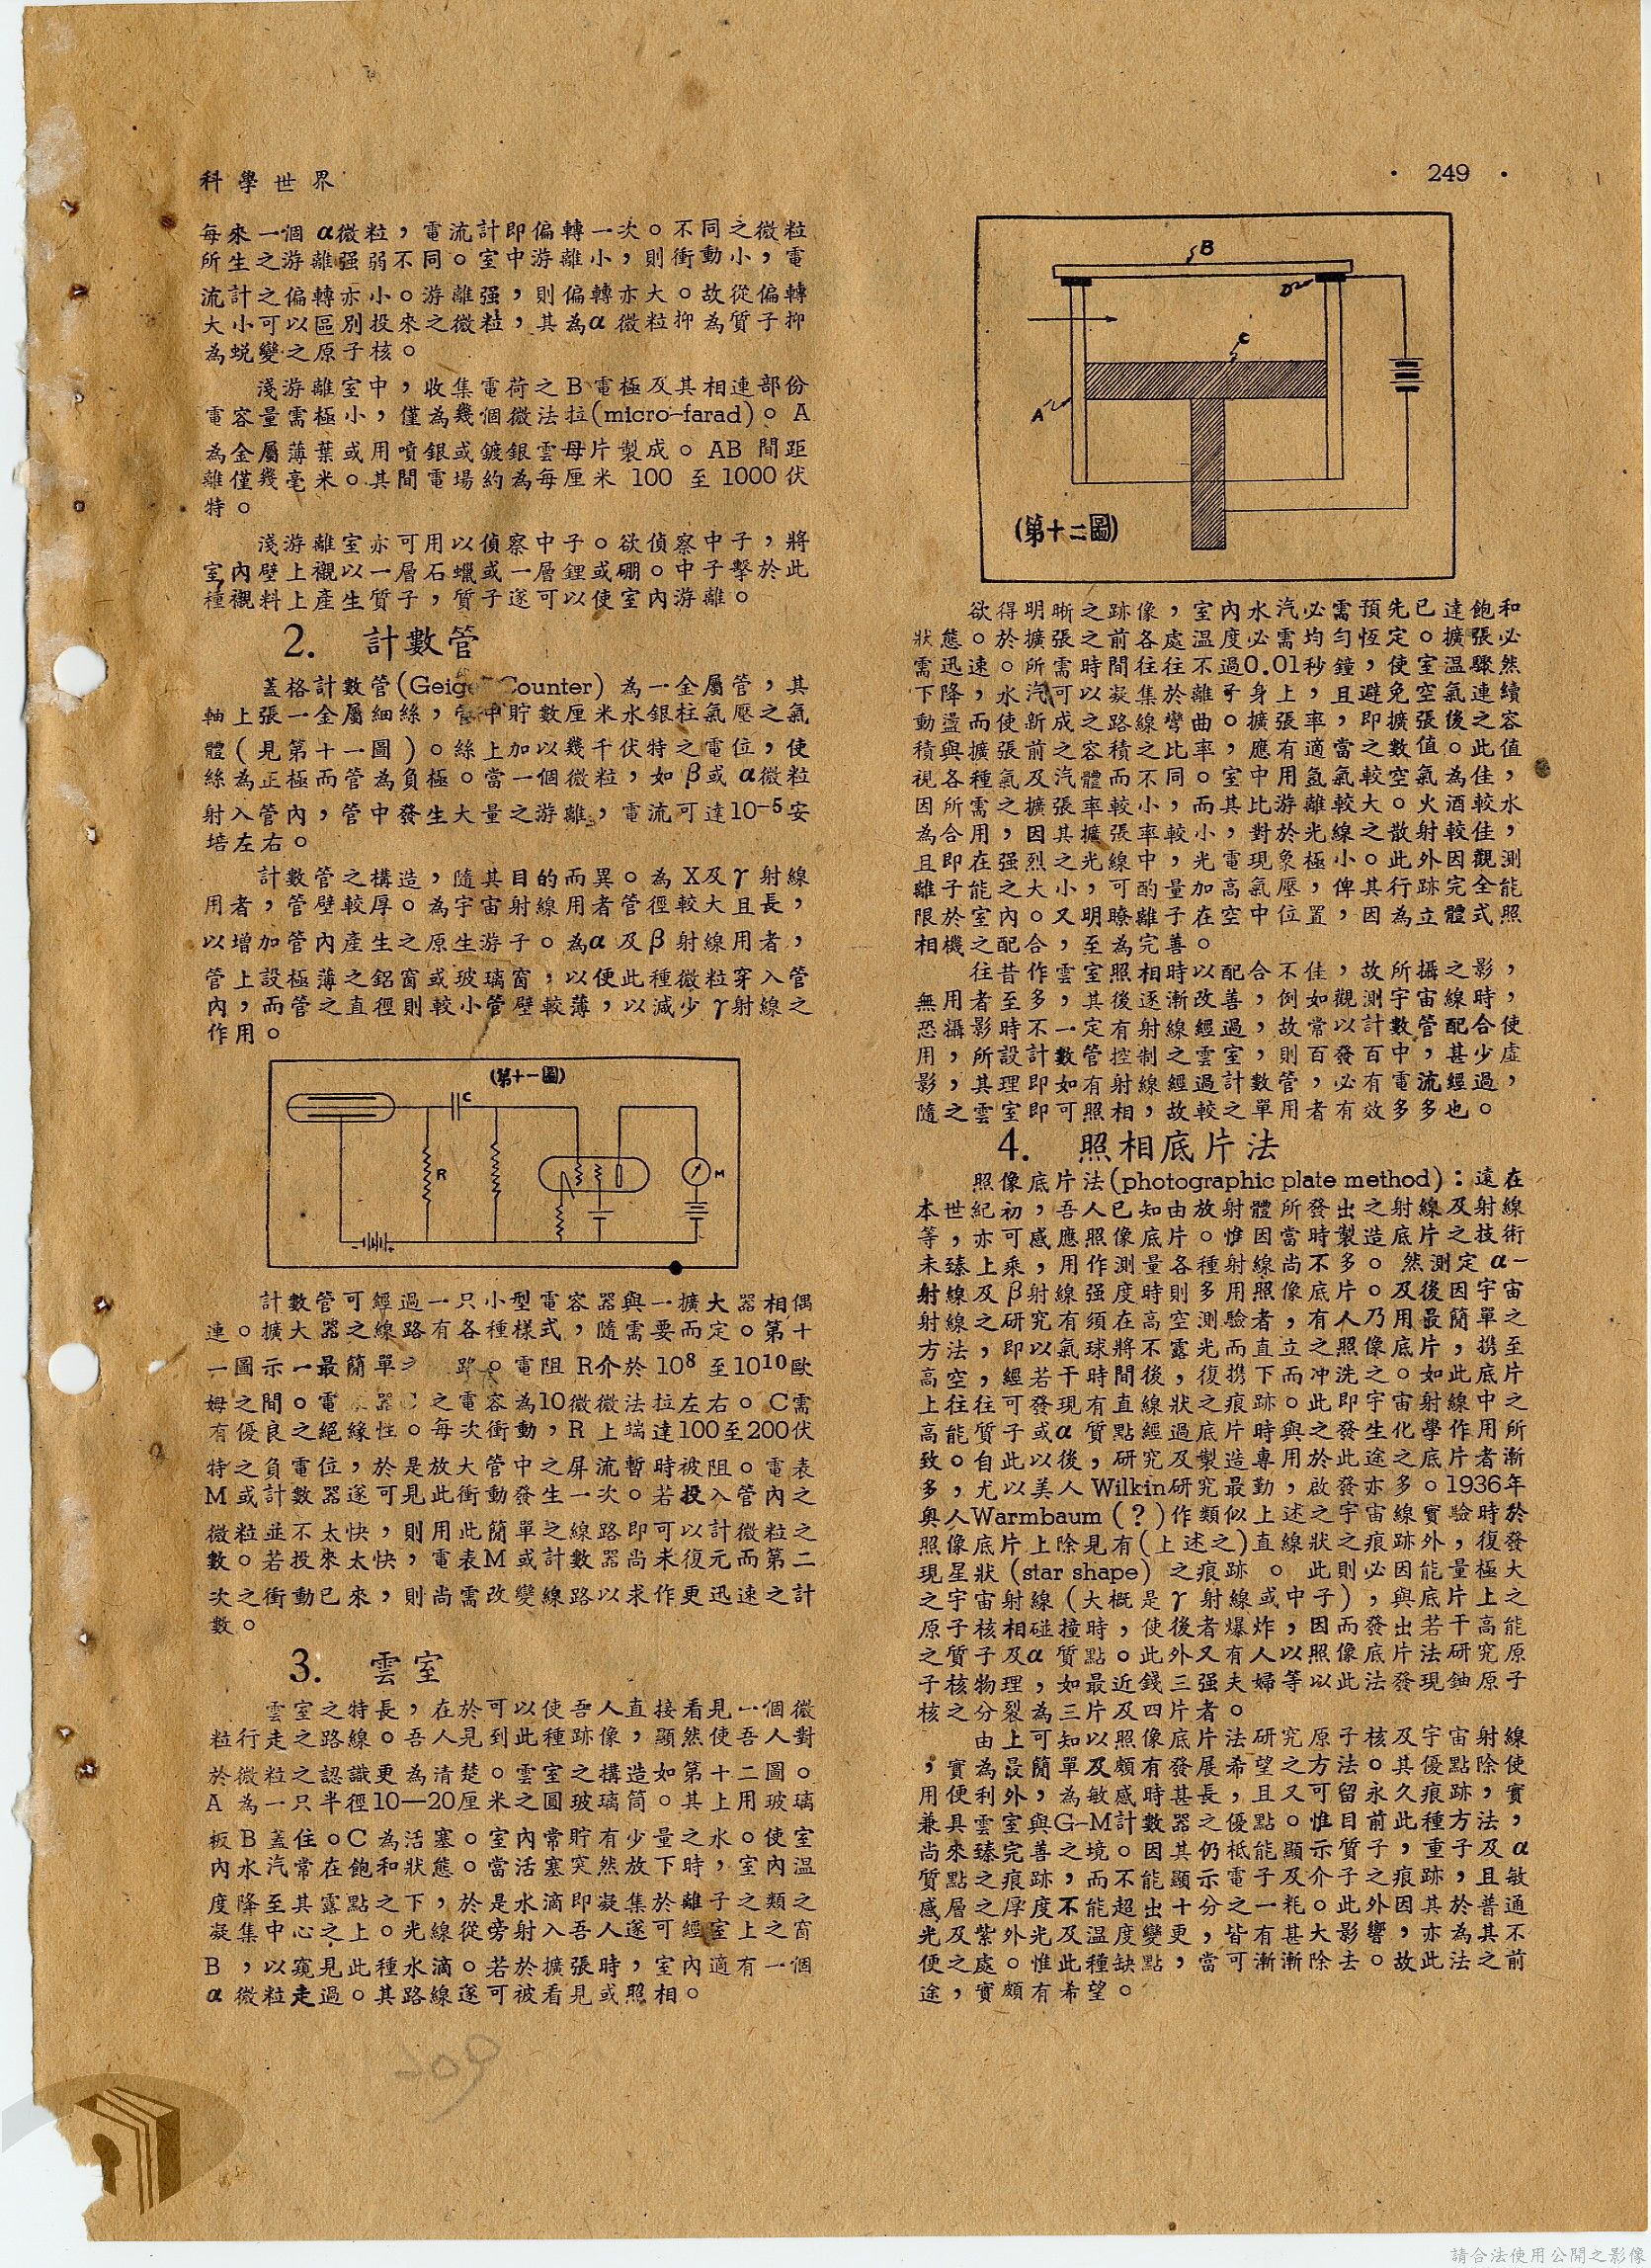 科學世界
• 249 •
每來一個 α微粒，電流計即偏轉一次。不同之微粒
所生之游離强弱不同。室中游離小，則衝動小，電
流計之偏轉亦小。游離强，則偏轉亦大。故從偏轉
大小可以區別投來之微粒，其為α 微粒抑為質子抑
為蛻變之原子核。
淺游離室中，收集電荷之 B 電極及其相連部份
電容量需極小，僅為幾個微法拉(micro-farad)。A
為金屬薄葉或用噴銀或鍍銀雲母片製成。AB 間距
離僅幾毫米。其間電場約為每厘米 100 至 1000 伏
特。
淺游離室亦可用以偵察中子。欲偵察中子，將
室內壁上襯以一層石蠟或一層鋰或硼。中子擊於此
種襯料上產生質子，質子遂可以使室內游離。
2. 計數管
蓋格計數管(Geige Counter) 為一金屬管，其
軸上張一金屬細絲，管中貯數厘米水銀柱氣壓之氣
體（見第十一圖）。絲上加以幾千伏特之電位，使
絲為正極而管為負極。當一個微粒，如 β或 α微粒
射入管內，管中發生大量之游離，電流可達10⁻⁵安
培左右。
計數管之構造，隨其目的而異。為 X及γ 射線
用者，管壁較厚。為宇宙射線用者管徑較大且長，
以增加管內產生之原生游子。為α 及 β 射線用者，
管上設極薄之鋁窗或玻璃窗，以便此種微粒穿入管
內，而管之直徑則較小管壁較薄，以減少 γ射線之
作用。
(第十一圖)
C
R
M
- +
計數管可經過一只小型電容器與一擴大器相偶
連。擴大器之線路有各種樣式，隨需要而定。第十
一圖示一最簡單 路。電阻 R介於 10⁸ 至10¹⁰歐
姆之間。電 器C 之電容為10微微法拉左右。C需
有優良之絕緣性。每次衝動，R 上端達100至200伏
特之負電位，於是放大管中之屏流暫時被阻。電表
M 或計數器遂可見此衝動發生一次。若投入管內之
微粒並不太快，則用此簡單之線路即可以計微粒之
數。若投來太快，電表M 或計數器尚未復元而第二
次之衝動已來，則尚需改變線路以求作更迅速之計
數。
3. 雲室
雲室之特長，在於可以使吾人直接看見一個微
粒行走之路線。吾人見到此種跡像，顯然使吾人對
於微粒之認識更為清楚。雲室之構造如第十二圖。
A 為一只半徑10—20厘米之圓玻璃筒。其上用玻璃
板 B 蓋住。C 為活塞。室內常貯有少量之水。使室
內水汽常在飽和狀態。當活塞突然放下時，室內溫
度降至其露點之下，於是水滴即凝集於離子之類之
凝集中心之上。光線從旁射入吾人遂可經室上之窗
B ，以窺見此種水滴。若於擴張時，室內適有一個
α 微粒走過。其路線遂可被看見或照相。
B
D
C
A
(第十二圖)
欲得明晰之跡像，室內水汽必需預先已達飽和
狀態。於擴張之前各處溫度必需均勻恆定。擴張必
需迅速。所需時間往往不過0.01秒鐘，使室溫驟然
下降，水汽可以凝集於離子身上，且避免空氣連續
動盪而使新成之路線彎曲。擴張率，即擴張後之容
積與擴張前之容積之比率，應有適當之數值。此值
視各種氣及汽體而不同。室中用氬氣較空氣為佳，
因所需之擴張率較小，而其比游離較大。火酒較水
為合用，因其擴張率較小，對於光線之散射較佳，
且即在强烈之光線中，光電現象極小。此外因觀測
離子能之大小，可酌量加高氣壓，俾其行跡完全能
限於室內。又明瞭離子在空中位置，因為立體式照
相機之配合，至為完善。
往昔作雲室照相時以配合不佳，故所攝之影，
無用者至多，其後逐漸改善，例如觀測宇宙線時，
恐攝影時不一定有射線經過，故常以計數管配合使
用，所設計數管控制之雲室，則百發百中，甚少虛
影，其理即如有射線經過計數管，必有電流經過，
隨之雲室即可照相，故較之單用者有效多多也。
4. 照相底片法
照像底片法(photographic plate method)：遠在
本世紀初，吾人已知由放射體所發出之射線及射線
等，亦可感應照像底片。惟因當時製造底片之技術
未臻上乘，用作測量各種射線尚不多。然測定 α–
射線及 β射線强度時則多用照像底片。及後因宇宙
射線之研究有須在高空測驗者，有人乃用最簡單之
方法，即以氣球將不露光而直立之照像底片，携至
高空，經若干時間後，復携下而冲洗之。如此底片
上往往可發現有直線狀之痕跡。此即宇宙射線中之
高能質子或α 質點經過底片時與之發生化學作用所
致。自此以後，研究及製造專用於此途之底片者漸
多，尤以美人 Wilkin研究最勤，啟發亦多。1936年
奥人Warmbaum (？)作類似上述之宇宙線實驗時於
照像底片上除見有(上述之)直線狀之痕跡外，復發
現星狀 (star shape) 之痕跡 。 此則必因能量極大
之宇宙射線（大概是 γ 射線或中子），與底片上之
原子核相碰撞時，使後者爆炸，因而發出若干高能
之質子及α 質點。此外又有人以照像底片法研究原
子核物理，如最近錢三强夫婦等以此法發現鈾原子
核之分裂為三片及四片者。
由上可知以照像底片法研究原子核及宇宙射線
，實為最簡單及頗有發展希望之方法。其優點除使
用便利外，為敏感時甚長，且又可留永久痕跡，實
兼具雲室與G–M計數器之優點。惟目前此種方法，
尚來臻完善之境。因其仍柢能顯示質子，重子及 α
質點之痕跡，而不能顯示電子及介子之痕跡，且敏
感層之厚度不能超出十分之一耗。此外因其於普通
光及紫外光及溫度變更，皆有甚大影響，亦為其不
便之處。惟此種缺點，當可漸漸除去。故此法之前
途，實頗有希望。
請合法使用公開之影像